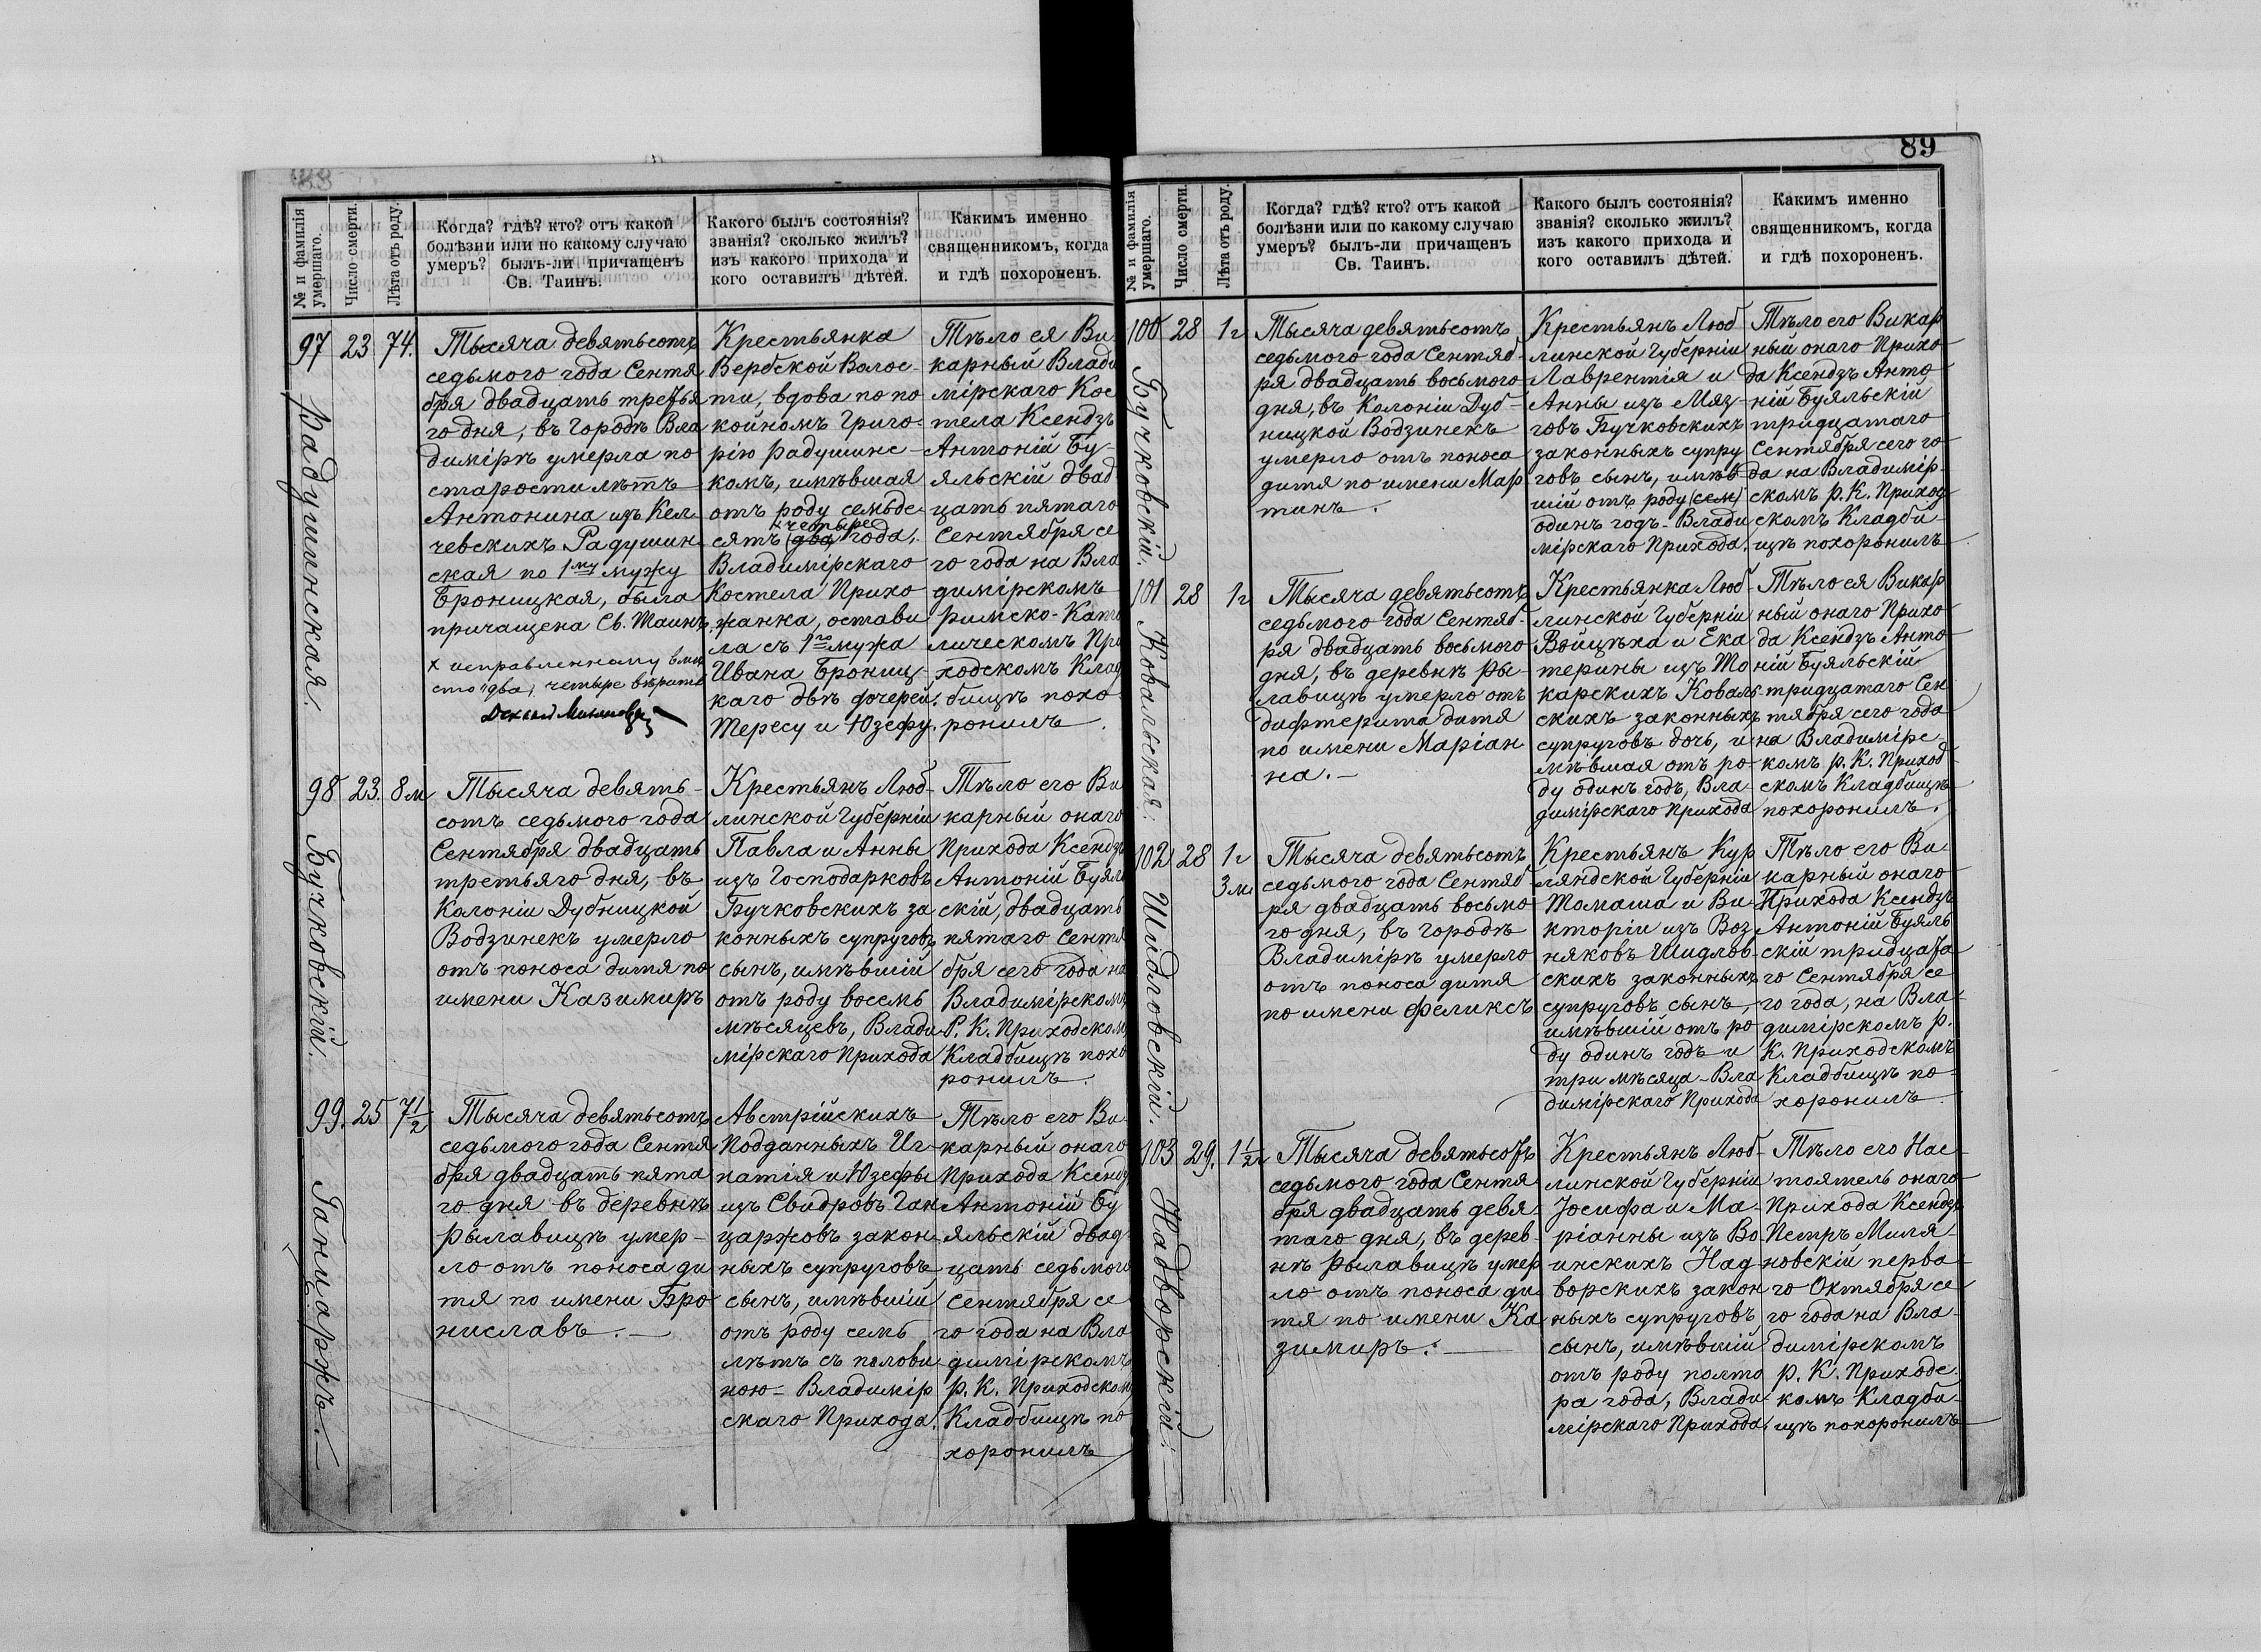 89
№ и фамилія умершаго.
Число смерти.
Лѣта отъ роду.
Когда? гдѣ? кто? отъ какой
болѣзни или по какому случаю
умеръ? былъ-ли причащенъ
Св. Таинъ.
Какого былъ состоянія?
званія? сколько жилъ?
изъ какого прихода и
кого оставилъ дѣтей.
Какимъ именно
священникомъ, когда
и гдѣ похороненъ.
97
Радушинская.
23
74.
Тысяча девятьсотъ
седьмого года Сентя
бря двадцать третья
го дня, въ Городѣ Вла
димірѣ умерла по
старости лѣтъ
Антонина изъ Кел
чевскихъ Радушин
ская по 1му мужу
Броницкая, была
причащена Св. Таинъ.
х исправленному вмѣ
сто "два", четыре вѣрить
Крестьянка
Вербской Волос-
ти, вдова по по
койномъ Григо-
рію Радушинс-
комъ, имѣвшая
отъ роду семьде-
четыре
сятъ (два) года,
Владимірскаго
Костела Прихо
жанка, остави
ла съ 1го мужа
Ивана Брониц-
каго двѣ дочерей:
Тересу и Юзефу.
Тѣло ея Ви
карный Влади
мірскаго Кос
тела Ксендзъ
Антоній Бу-
яльскій двад
цать пятаго
Сентября се
го года на Вла
димірскомъ
Римско-Като
лическомъ При
ходскомъ Клад
бищѣ похо
ронилъ.
98
Бучковскій.
23.
8 м
Тысяча девять-
сотъ седьмого года
Сентября двадцать
третьяго дня, въ
Колоніи Дубницкой
Водзинекъ умерло
отъ поноса дитя по
имени Казимиръ
Крестьянъ Люб-
линской Губерніи
Павла и Анны
изъ Господарковъ
Бучковскихъ за
конныхъ супруговъ
сынъ, имѣвшій
отъ роду восемь
мѣсяцевъ, Влади
мірскаго Прихода
Тѣло его Ви
карный онаго
Прихода Ксендзъ
Антоній Буяль
скій, двадцать
пятаго Сентя
бря сего года на
Владимірскомъ
Р. К. Приходскомъ
Кладбищѣ похо
ронилъ.
99.
Ганцаржъ.
25
7½
Тысяча девятьсотъ
седьмого года Сентя
бря двадцать пята
го дня въ деревнѣ
Рылавицѣ умер-
ло отъ поноса ди
тя по имени Бро
ниславъ.
Австрійскихъ
Подданныхъ Иг-
натія и Юзефы
изъ Свидровъ Ган
царжовъ закон-
ныхъ супруговъ
сынъ, имѣвшій
отъ роду семь
лѣтъ съ полови
ною - Владимір
скаго Прихода.
Тѣло его Ви-
карный онаго
Прихода Ксендзъ
Антоній Бу
яльскій двад-
цать седьмого
Сентября се
го года на Вла
димірскомъ
р. К. Приходскомъ
Кладбищѣ по
хоронилъ
№ и фамилія умершаго.
Число смерти.
Лѣта отъ роду.
Когда? гдѣ? кто? отъ какой
болѣзни или по какому случаю
умеръ? былъ-ли причащенъ
Св. Таинъ.
Какого былъ состоянія?
званія? сколько жилъ?
изъ какого прихода и
кого оставилъ дѣтей.
Какимъ именно
священникомъ, когда
и гдѣ похороненъ.
100
Бучковскій.
28
1 г
Тысяча девятьсотъ
седьмого года Сентяб-
ря двадцать восьмого
дня, въ Колоніи Дуб-
ницкой Водзинекъ
умерло отъ поноса
дитя по имени Мар
тинъ.
Крестьянъ Люб
линской Губерніи
Лаврентія и
Анны изъ Мяз-
говъ Бучковскихъ
законныхъ супру
говъ сынъ, имѣв
шій отъ роду (сем)
одинъ годъ - Влади
мірскаго Прихода.
Тѣло его Викар
ный онаго Прихо
да Ксендзъ Анто
ній Буяльскій
тридцатаго
Сентября сего го
да на Владимір-
скомъ р. К. Приход
скомъ Кладби-
щѣ похоронилъ
101
Ковальская.
28
1 г
Тысяча девятьсотъ
седьмого года Сентяб-
ря двадцать восьмого
дня, въ деревнѣ Ры-
лавицѣ умерло отъ
дифтерита дитя
по имени Маріан
на.
Крестьянка Люб-
линской Губерніи
Войцѣха и Ека
терины изъ То
карскихъ Коваль
скихъ законныхъ
супруговъ дочь, и
мѣвшая отъ ро-
ду одинъ годъ, Вла-
димірскаго Прихода
Тѣло ея Викар
ный онаго Прихо
да Ксендзъ Анто
ній Буяльскій
тридцатаго Сен
тября сего года
на Владимірс-
комъ р. К. Приход-
скомъ Кладбищѣ
похоронилъ.
102
Шидловскій.
28
1 г
3 м.
Тысяча девятьсотъ
седьмого года Сентяб
ря двадцать восьмо
го дня, въ городѣ
Владимірѣ умерло
отъ поноса дитя
по имени Феликсъ
Крестьянъ Кур
ляндской Губерніи
Томаша и Ви-
кторіи изъ Воз
няковъ Шидлов-
скихъ законныхъ
супруговъ сынъ,
имѣвшій отъ ро
ду одинъ годъ и
три мѣсяца - Вла
димірскаго Прихода
Тѣло его Ви
карный онаго
Прихода Ксендзъ
Антоній Буяль
скій тридцата
го Сентября се
го года, на Вла-
димірскомъ р.
К. Приходскомъ
Кладбищѣ по-
хоронилъ.
103
Надворскій.
29.
1½ г
Тысяча девятьсотъ
седьмого года Сентя
бря двадцать девя-
таго дня, въ дерев-
нѣ Рылавицѣ умер
ло отъ поноса ди
тя по имени Ка
зимиръ.
Крестьянъ Люб-
линской Губерніи
Іосифа и Ма-
ріанны изъ Во
инскихъ Над-
ворскихъ закон
ныхъ супруговъ
сынъ, имѣвшій
отъ роду полто
ра года, Влади
мірскаго Прихода
Тѣло его Нас-
тоятель онаго
Прихода Ксендзъ
Петръ Миля-
новскій перва-
го Октября се
го года на Вла-
димірскомъ
р. К. Приходс-
комъ Кладби-
щѣ похоронилъ